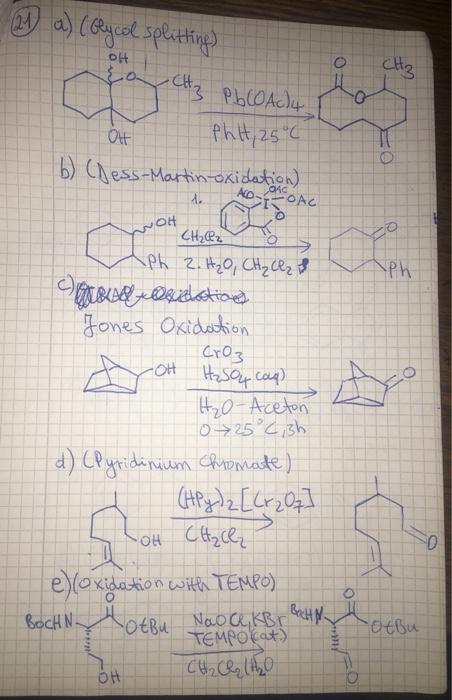 21 a) (Glycol splitting)
OH
O
CH3
OH
Pb(OAc)4
PhH, 25°C
O
O
CH3
O
b) (Dess-Martin-oxidation)
1.
AcO
OAc
I
OAc
O
O
OH
Ph
CH2Cl2
2. H2O, CH2Cl2
O
Ph
c)
Jones Oxidation
OH
CrO3
H2SO4 (aq)
H2O-Aceton
0→25°C, 3h
O
d) (Pyridinium Chromate)
OH
(HPy)2[Cr2O7]
CH2Cl2
O
e) (Oxidation with TEMPO)
O
BocHN
OtBu
OH
NaOCl, KBr
TEMPO (cat.)
CH2Cl2/H2O
O
BocHN
OtBu
O